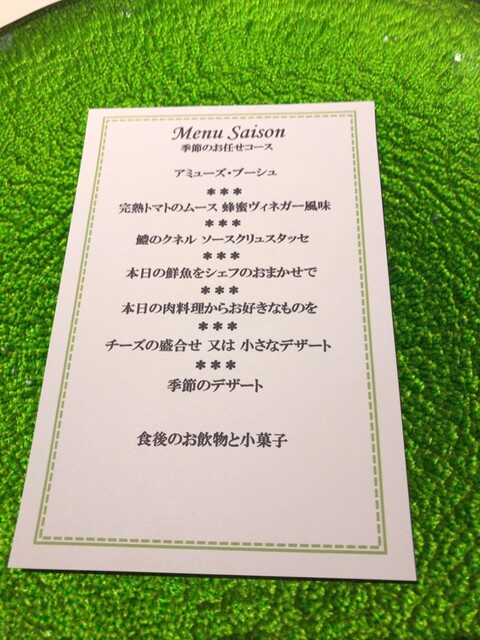 Menu Saison
季節のお任せコース
アミューズ・ブーシュ
***
完熟トマトのムース 蜂蜜ヴィネガー風味
***
鱧のクネル ソースクリュスタッセ
***
本日の鮮魚をシェフのおまかせで
***
本日の肉料理からお好きなものを
***
チーズの盛合せ 又は 小さなデザート
***
季節のデザート
食後のお飲物と小菓子